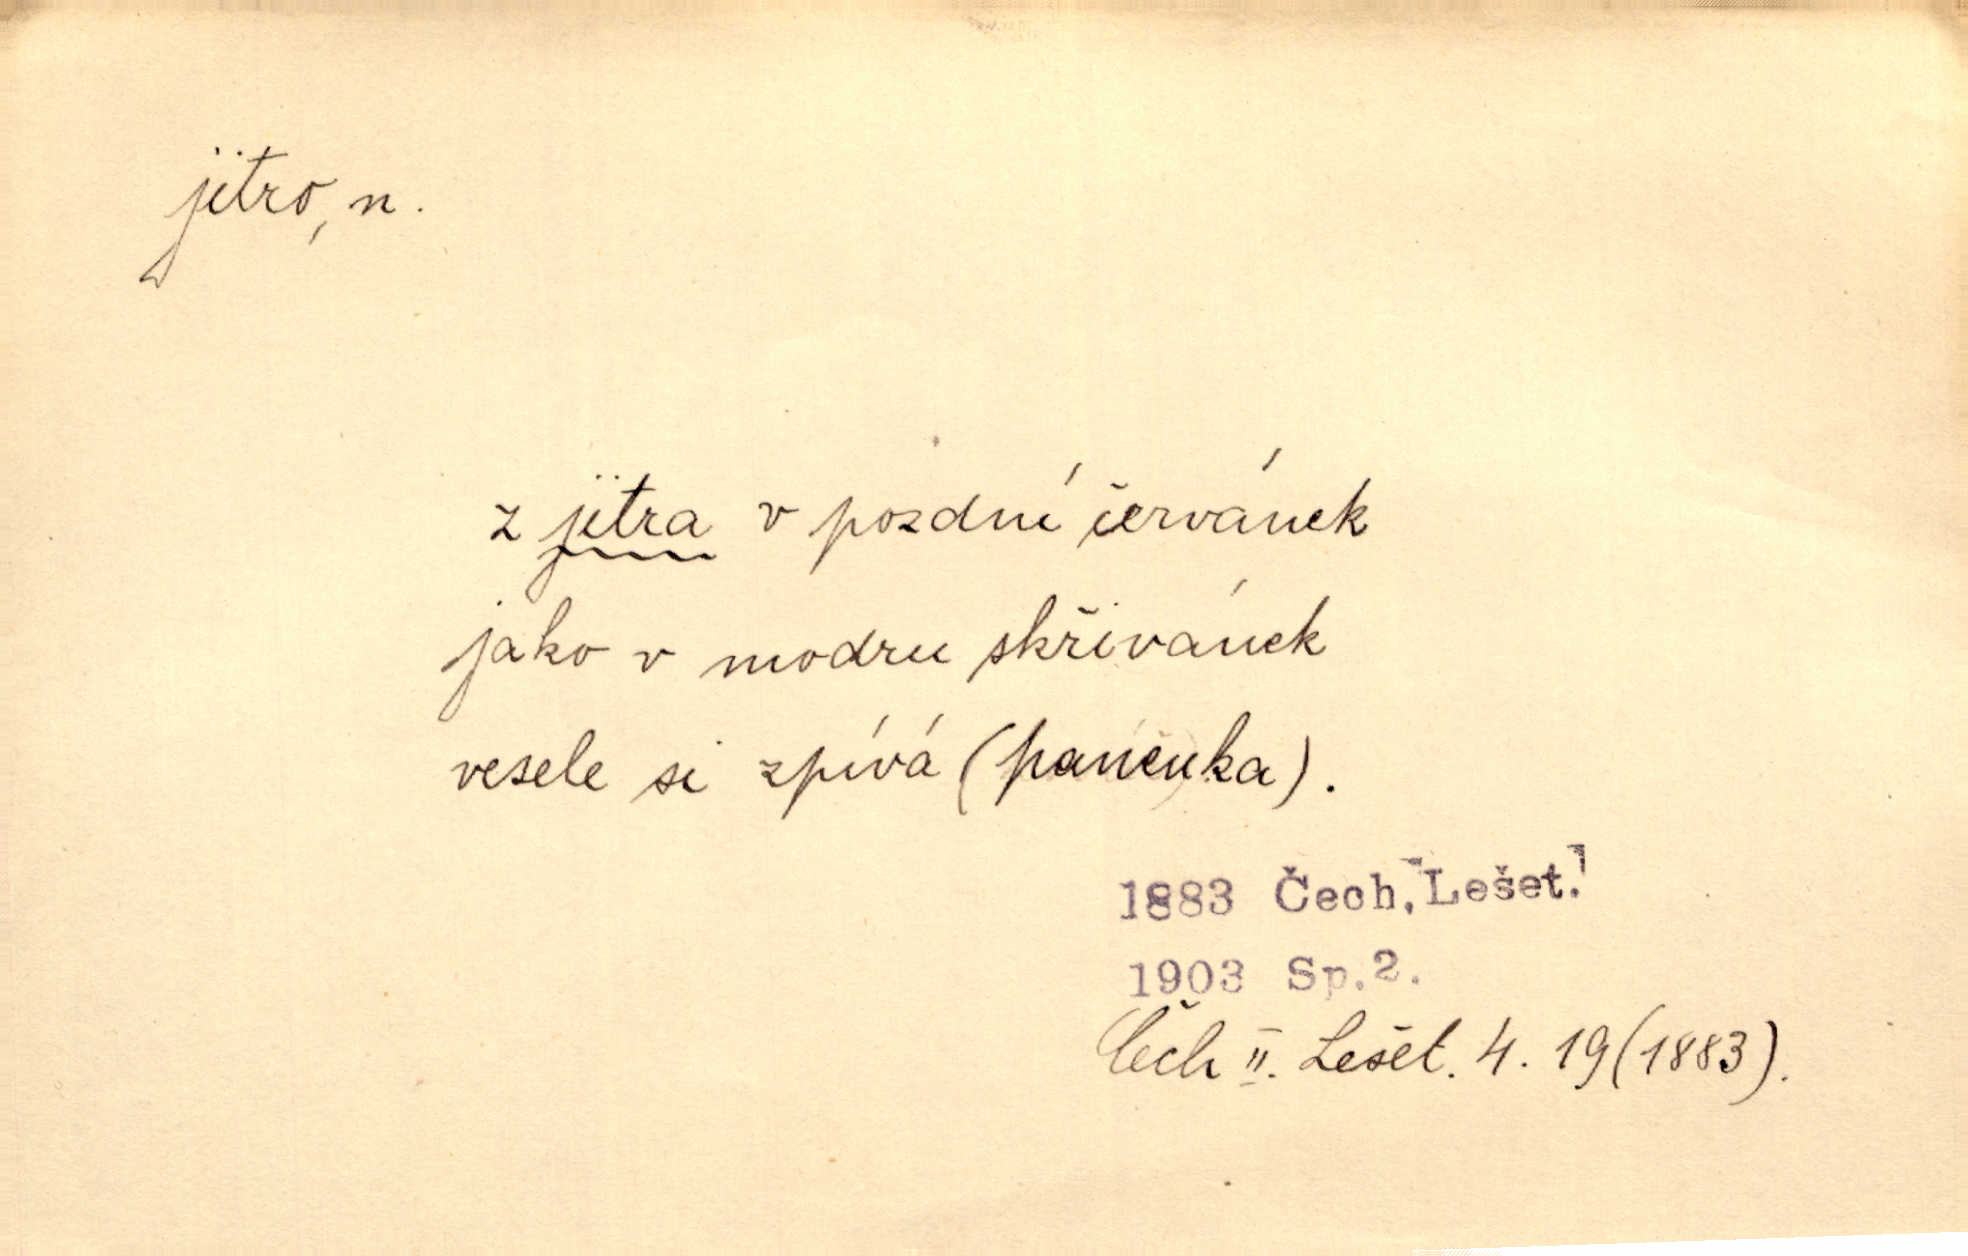 jitro, n.
z jitra v pozdní červánek
jako v modru skřivánek
vesele si zpívá (panenka).
1883 Čech, Lešet.
1903 Sp.2.
Čech II. Lešet. 4. 19 (1883).